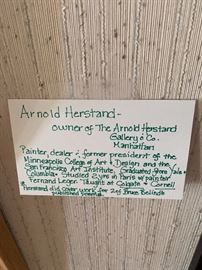 Arnold Herstand -
owner of The Arnold Herstand
Gallery & Co.
Manhattan
Painter, dealer & former president of the
Minneapolis College of Art & Design and the
San Francisco Art Institute. Graduated from Yale &
Columbia. Studied 2 yrs in Paris w/ painter
Fernand Leger. Taught at Colgate & Cornell
Herstand did cover work for 2nd Bruce
published